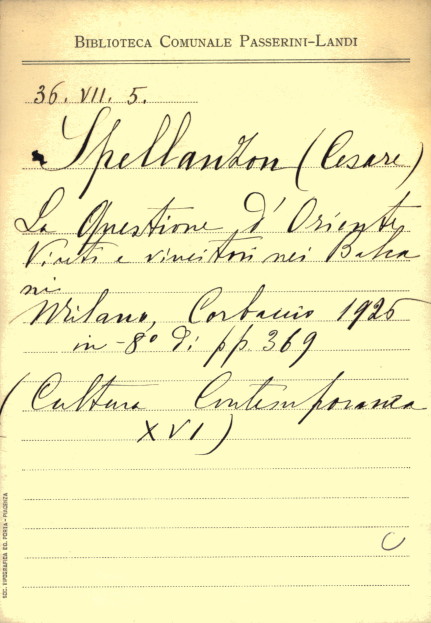 BIBLIOTECA COMUNALE PASSERINI-LANDI
36. VII. 5.
Spellanzon (Cesare)
La Questione d'Oriente
Vinti e vincitori nei Balca
ni
Milano, Corbaccio 1926
in-8° di pp. 369
(Cultura Contemporanea
XVI)
SOC. TIPOGRAFICA ED. PORTA-PIACENZA